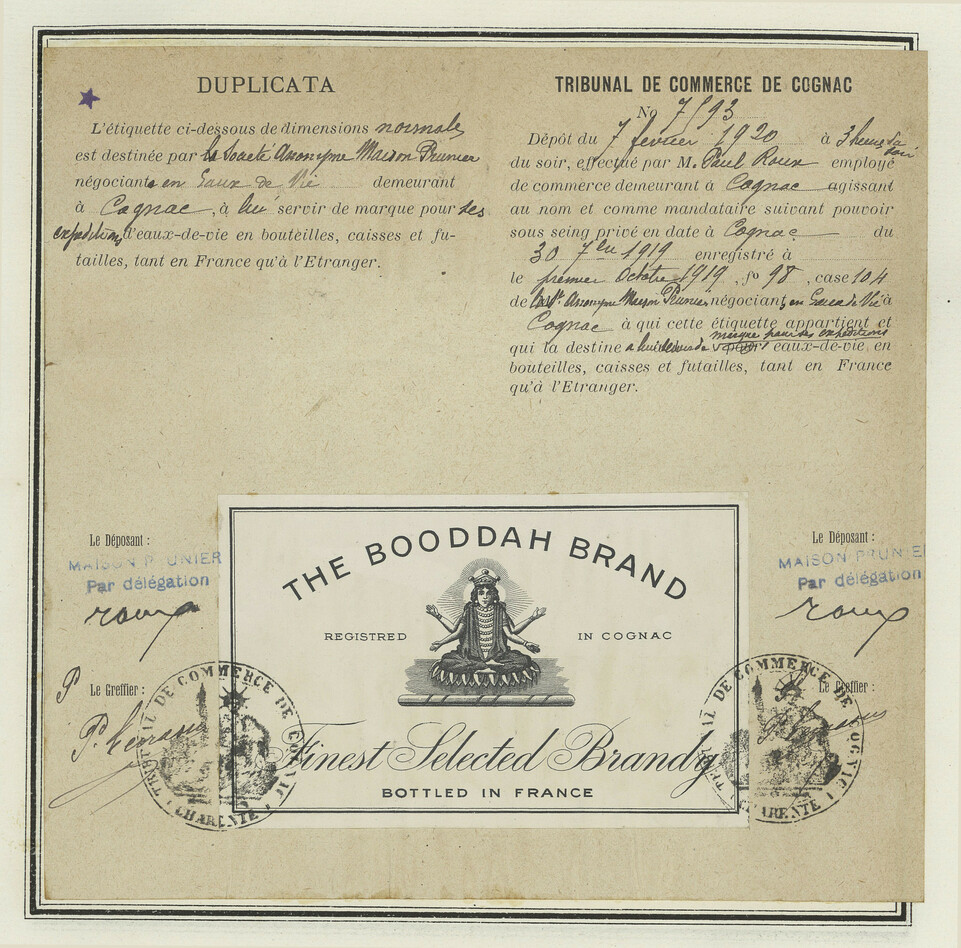 DUPLICATA
L'étiquette ci-dessous de dimensions normales
est destinée par la Société Anonyme Maison Prunier
négociants en Eaux de Vie demeurant
à Cognac, à lui servir de marque pour ses
expéditions d'eaux-de-vie en bouteilles, caisses et fu-
tailles, tant en France qu'à l'Etranger.
TRIBUNAL DE COMMERCE DE COGNAC
No 7593
Dépôt du 7 février 1920 à 3 heures du
soir
du soir, effectué par M. Paul Roux employé
de commerce demeurant à Cognac agissant
au nom et comme mandataire suivant pouvoir
sous seing privé en date à Cognac du
30 7bre 1919 enregistré à
le premier Octobre 1919, fo 98, case 104
de la Sté Anonyme Maison Prunier négociants en Eaux de Vie à
Cognac à qui cette étiquette appartient et
marque pour ses expéditions
qui la destine à lui servir de eaux-de-vie en
bouteilles, caisses et futailles, tant en France
qu'à l'Etranger.
Le Déposant :
MAISON PRUNIER
Par délégation
roux
P
Le Greffier :
TRIBUNAL DE COMMERCE DE COGNAC
CHARENTE
THE BOODDAH BRAND
REGISTRED IN COGNAC
Finest Selected Brandy
BOTTLED IN FRANCE
Le Déposant :
MAISON PRUNIE
Par délégation
roux
Le Greffier :
TRIBUNAL DE COMMERCE DE COGNAC
CHARENTE